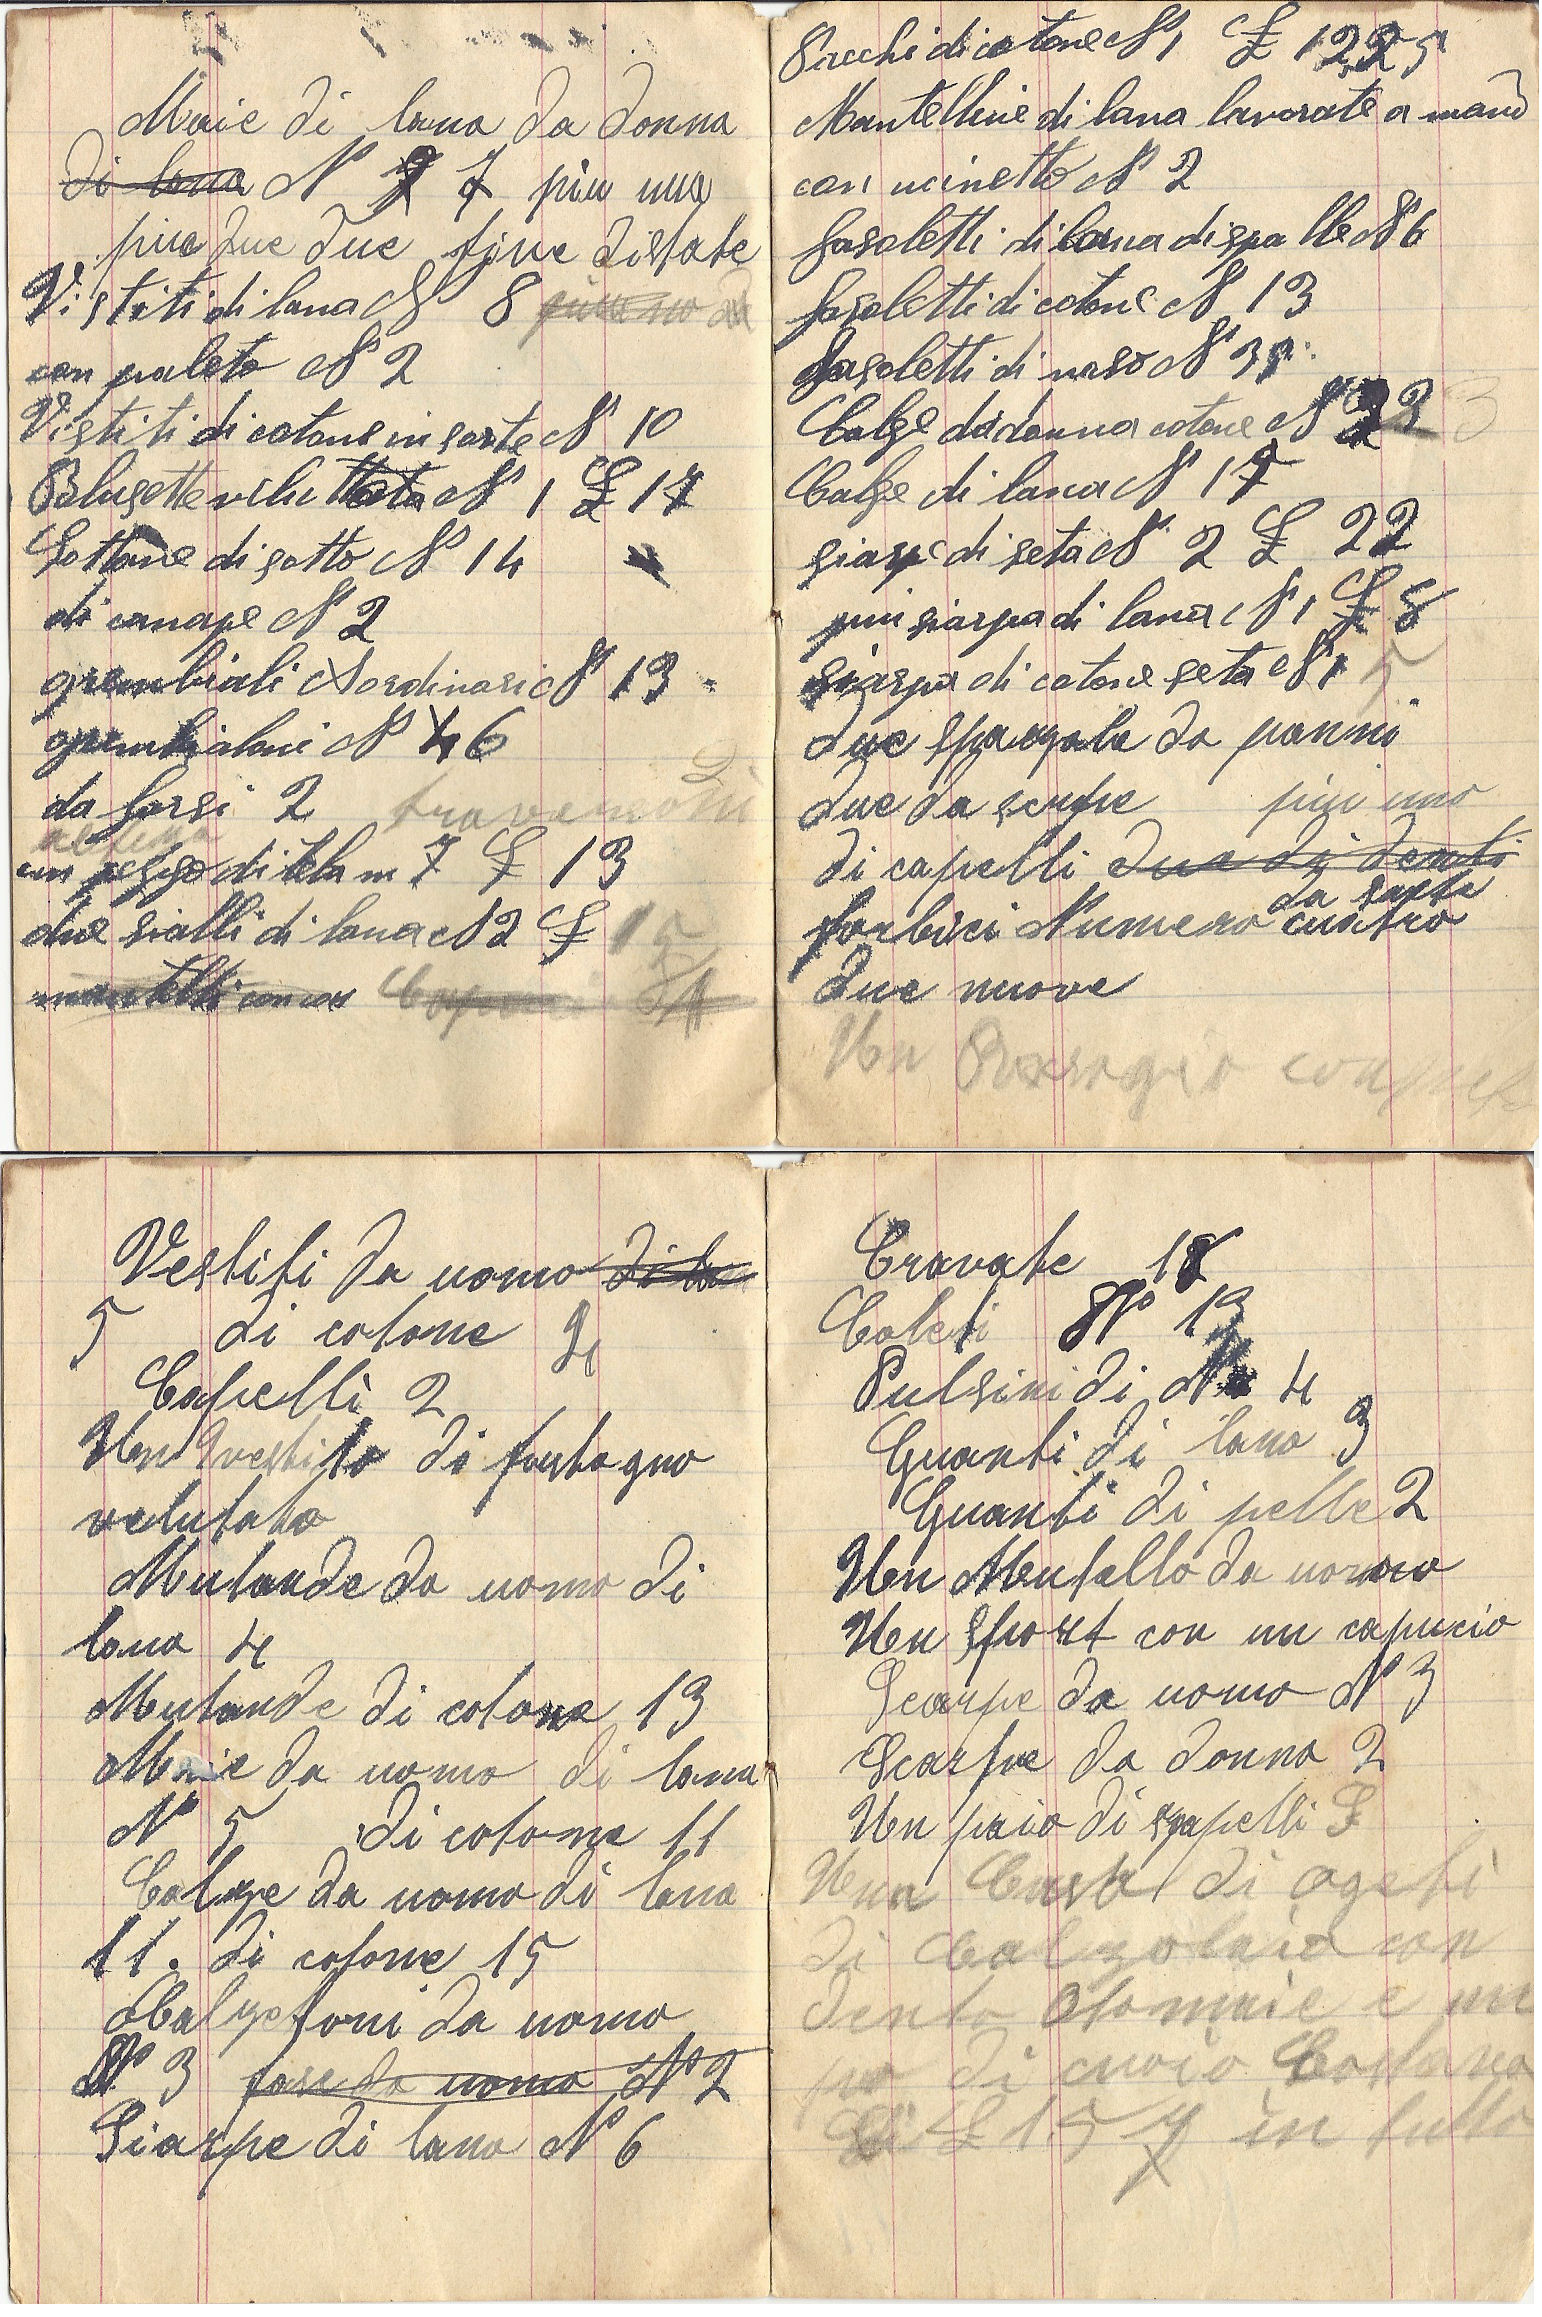 Maie di lana da donna
di lana N 7 piu una
piu due due fine distate
Vistiti di lana N 8
con paleto N 2
Vistiti di cotone in sorte N 10
Blusette N 1 £ 17
Sottane di sotto N 14
di canape N 2
grembiali ordinari N 13
grembialoni N 6
da forsi 2 traversoni 2
un pezzo di tela m 7 £ 13
due sialli di lana N 2 £ 15
mantelli con
Sacchi di cotone N 1 £ 12,25
Mantelline di lana lavorate a mano
con ucinetto N 2
fasoletti di lana di spalle N 6
fasoletti di cotone N 13
fasoletti di naso N
Calze da donna cotone N 23
Calze di lana N 17
siarpe di seta N 2 £ 22
piu siarpa di lana N 1 £ 8
siarpa di cotone seta N 1 5
due spazzola da panni
due da scarpe piu uno
di capelli due di denti
da sarta
forbici Numero cuatro
due nuove
Un
Vestiti da uomo di la
5 di cotone 4
Capelli 2
Un vestito di fustagno
velutato
Mutande da uomo di
lana 4
Mutande di cotone 13
Maie da uomo di lana
N 5 di cotone 11
Calze da uomo di lana
11. di cotone 15
Calzetoni da uomo
N 3 fase da uomo N 2
Siarpe di lana N 6
Cravate 18
Coleti N 13
Pulsini di N 4
Guanti di lana 3
Guanti di pelle 2
Un Mentello da uomo
Un sport con un capucio
Scarpe da uomo N 3
Scarpe da donna 2
Un paio di
Una Casa di ageti
di Calzolaio con
dento otomaie e un
po di cuoio Costano
di £ 15 in tutto